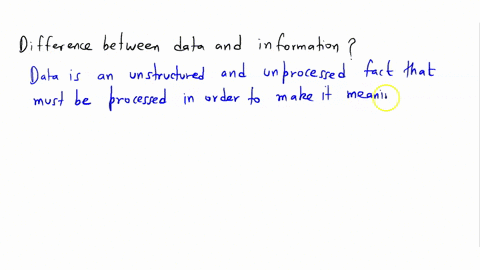 Difference between data and information ?
Data is an unstructured and unprocessed fact that
must be processed in order to make it meani